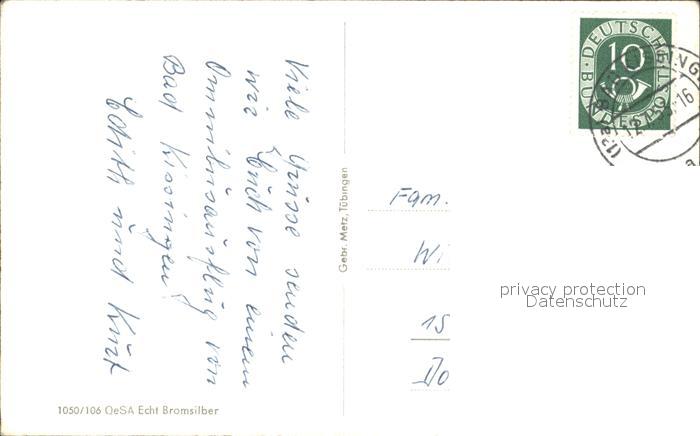 Viele Grüsse senden
wir Euch von einem
Omnibusausflug von
Bad Kissingen!
Edith und Kurt
1050/106 QeSA Echt Bromsilber
Gebr. Metz, Tübingen
DEUTSCHE
BUNDESPOST
10
Fam.
Wi
15
Do
privacy protection
Datenschutz